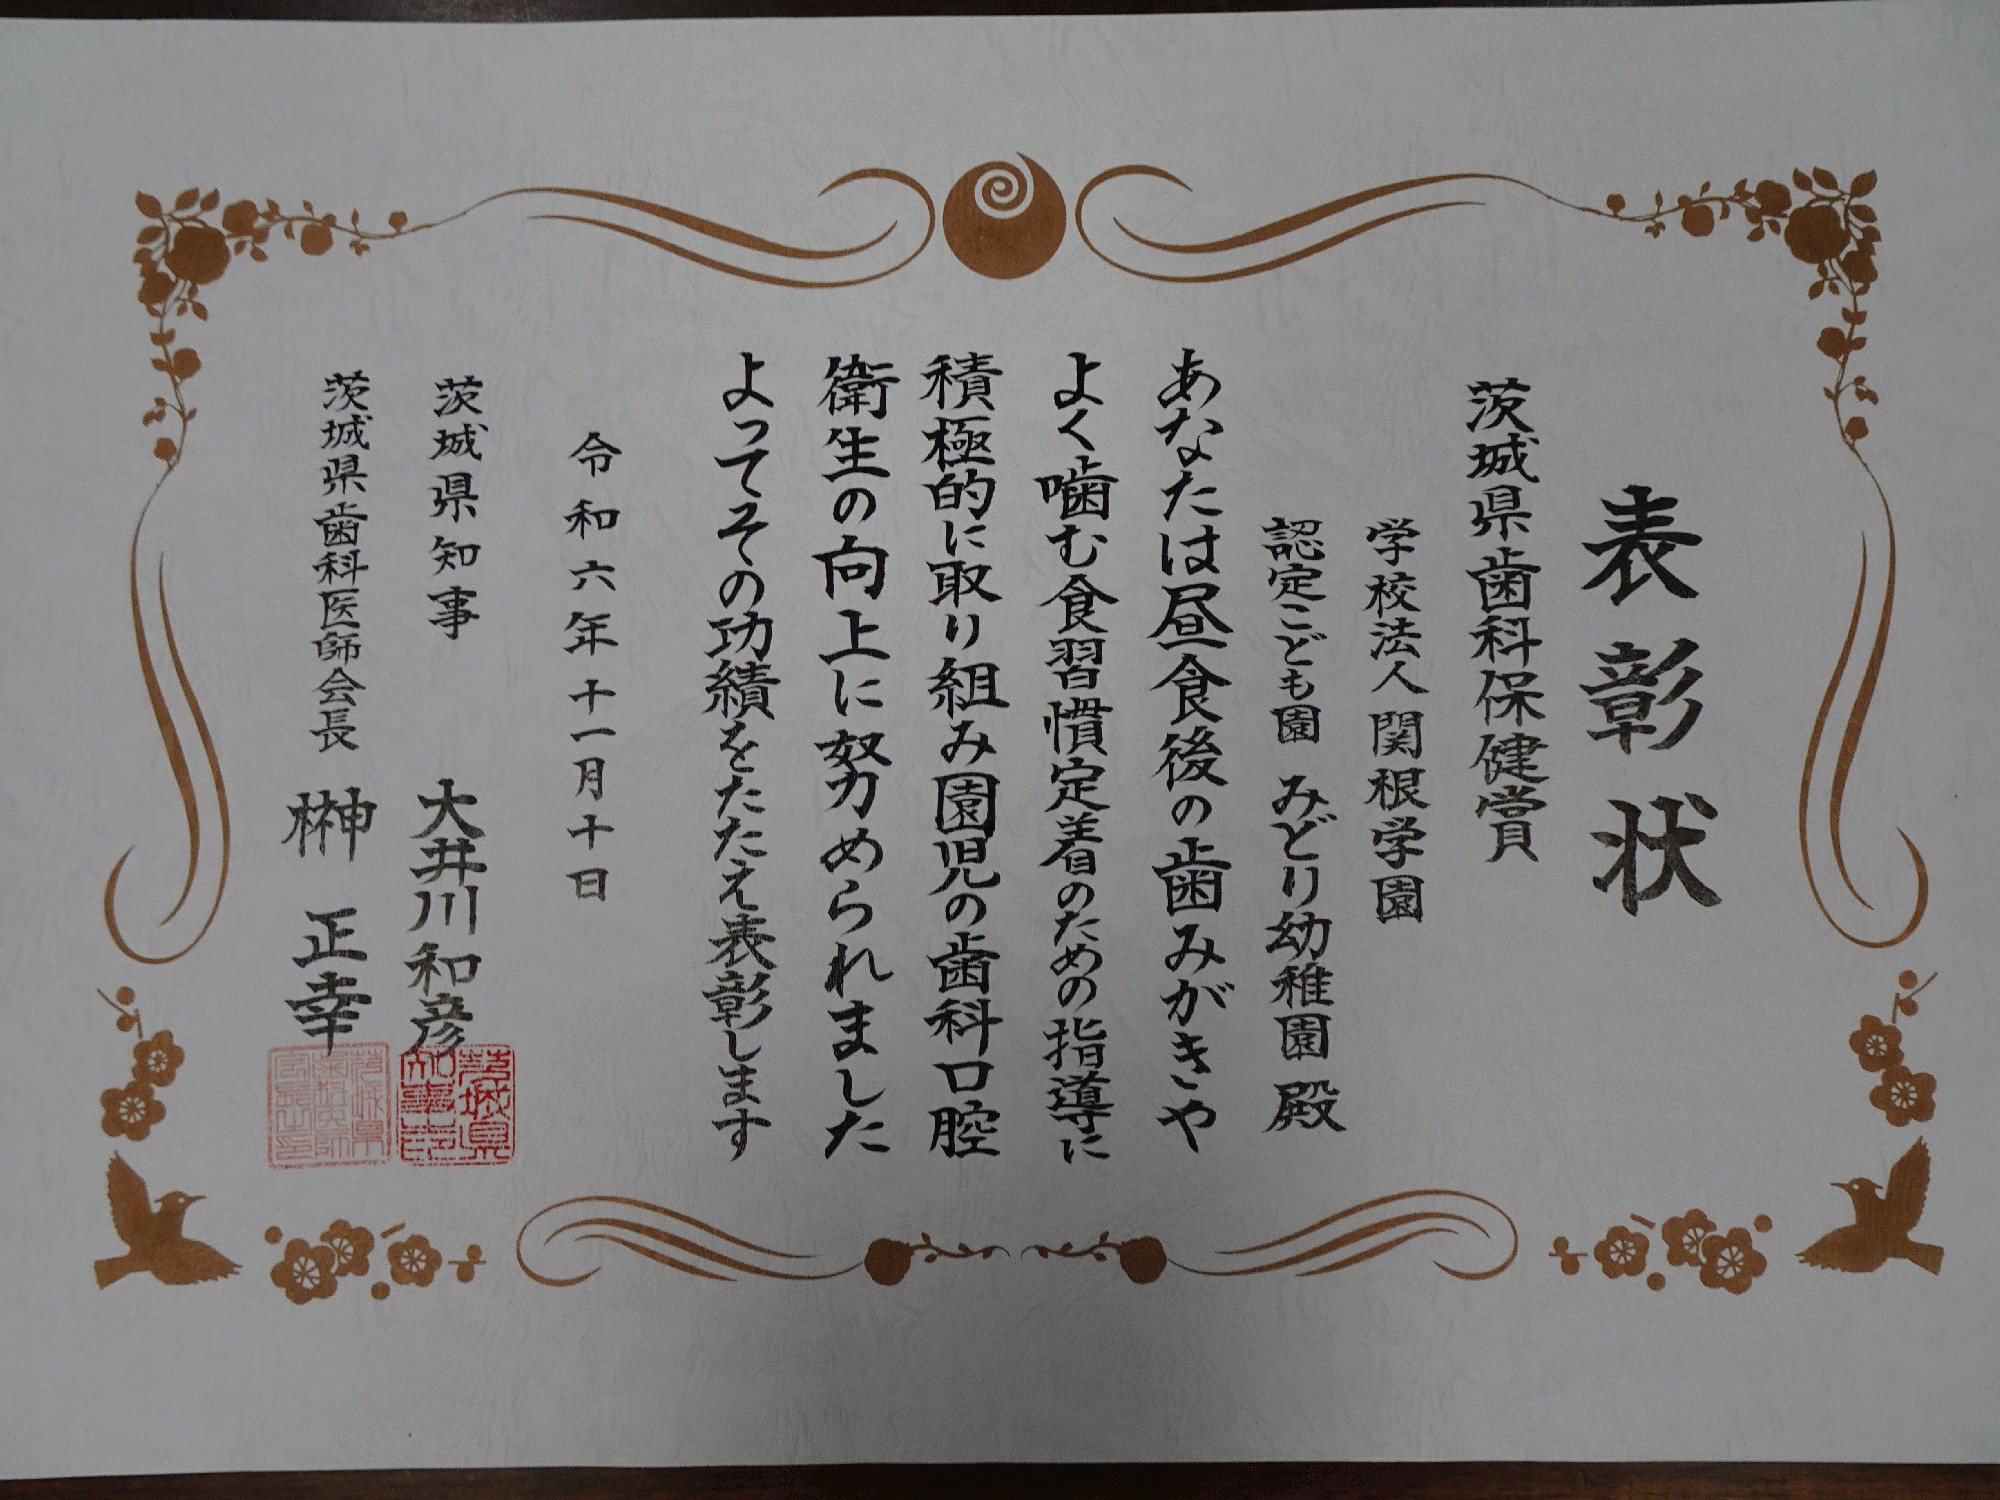 表彰状
茨城県歯科保健賞
学校法人関根学園
認定こども園 みどり幼稚園 殿
あなたは昼食後の歯みがきや
よく噛む食習慣定着のための指導に
積極的に取り組み園児の歯科口腔
衛生の向上に努められました
よってその功績をたたえ表彰します
令和六年十一月十日
茨城県知事 大井川和彦
茨城県知事印
茨城県歯科医師会長 榊 正幸